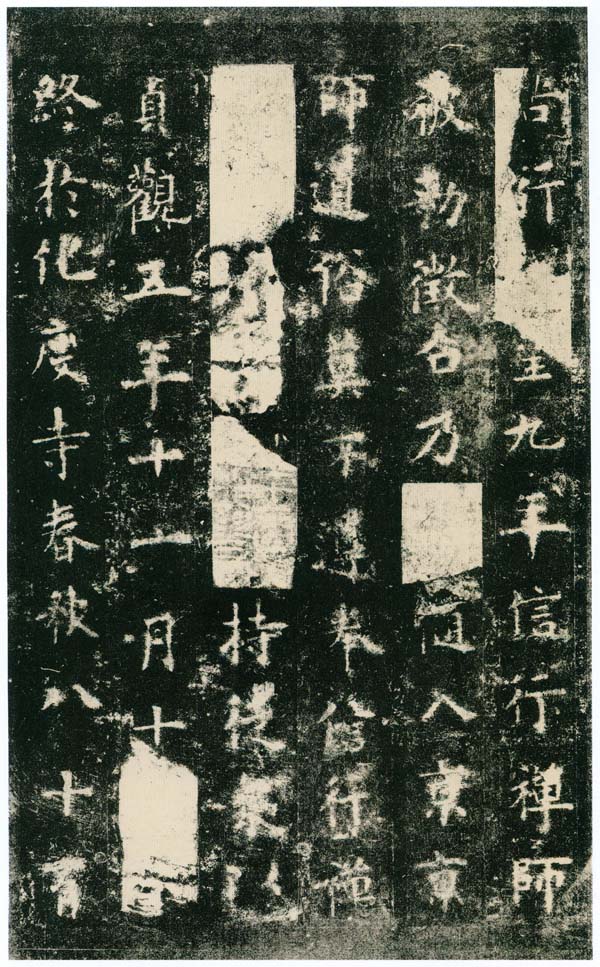 行 九年信行禅師
被勑徵召乃 随入京京
師道俗莫不遵奉信行禅
持徒衆以
貞觀五年十一月十
終於化度寺春秋八十有